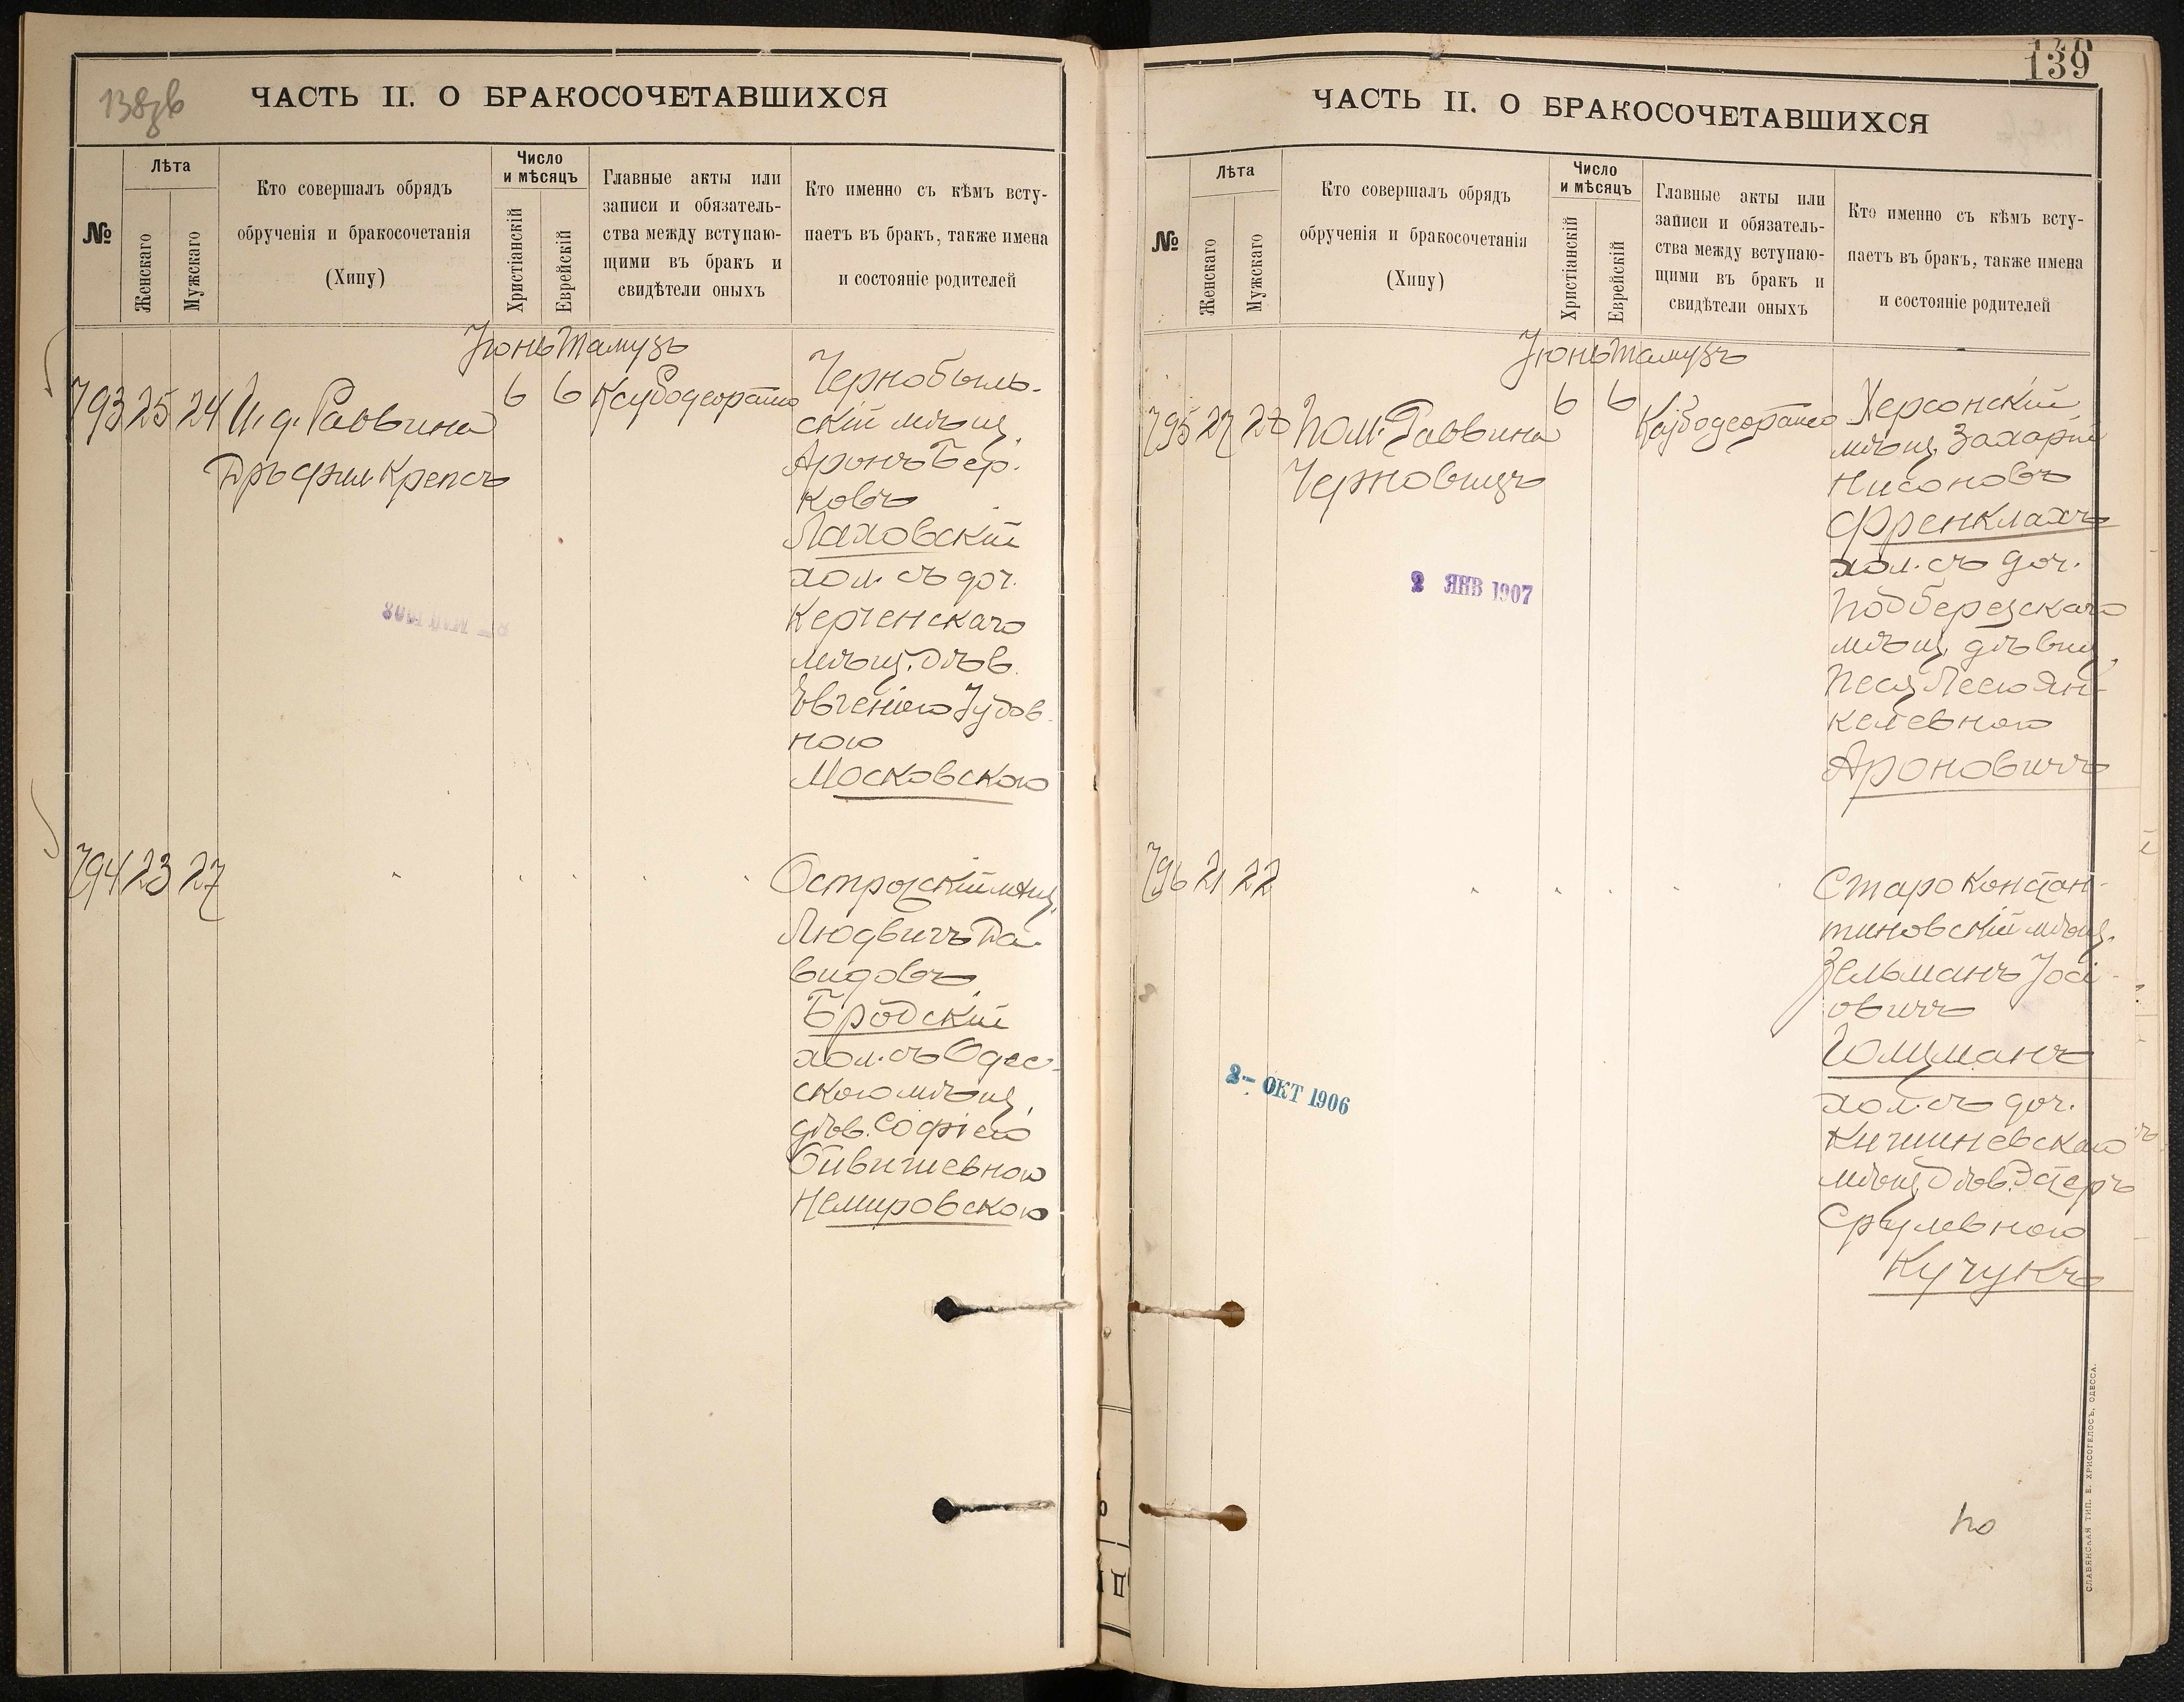 138зв
ЧАСТЬ II. О БРАКОСОЧЕТАВШИХСЯ
№
Лѣта
Женскаго
Мужскаго
Кто совершалъ обрядъ
обрученія и бракосочетанія
(Хипу)
Число
и мѣсяцъ
Христіанскій
Еврейскій
Главные акты или
записи и обязатель-
ства между вступаю-
щими въ бракъ и
свидѣтели оныхъ
Кто именно съ кѣмъ всту-
паетъ въ бракъ, также имена
и состояніе родителей
Іюнь Тамузъ
793 25 24 И. д. Раввина
Дръ Фил. Крепсъ
6 6
Чернобыль-
скій мѣщ.
Аронъ Бер-
ковъ
Лаховскій
хол. съ доч.
Керченскаго
мѣщ. дѣв.
Евгеніею Іудов-
ною
Московскою
794 23 27
Острогскій мѣщ.
Людвигъ Да-
видовъ
Бродскій
хол. съ Одес-
скою мѣщ.
дѣв. Софіею
Немировскою
139
ЧАСТЬ II. О БРАКОСОЧЕТАВШИХСЯ
№
Лѣта
Женскаго
Мужскаго
Кто совершалъ обрядъ
обрученія и бракосочетанія
(Хипу)
Число
и мѣсяцъ
Христіанскій
Еврейскій
Главные акты или
записи и обязатель-
ства между вступаю-
щими въ бракъ и
свидѣтели оныхъ
Кто именно съ кѣмъ всту-
паетъ въ бракъ, также имена
и состояніе родителей
Іюнь Тамузъ
795 27 28 Пом. Раввина
Черновицъ
6 6
2 ЯНВ 1907
Херсонскій
мѣщ. Захарій
Нисоновъ
Френклахъ
хол. съ доч.
Подберезскаго
мѣщ. дѣвиц.
Песя Леею Ян-
келевною
Ароновичъ
796 21 22
2- ОКТ 1906
Старо Констан-
тиновскій мѣщ.
Зельманъ Іосі-
овичъ
Гольцманъ
хол. съ доч.
Кишиневскаго
мѣщ. дѣв. Эстеръ
Срулевною
Кучукъ
СЛАВЯНСКАЯ ТИП. Е. ХРИСОГЕЛОСЪ, ОДЕССА.